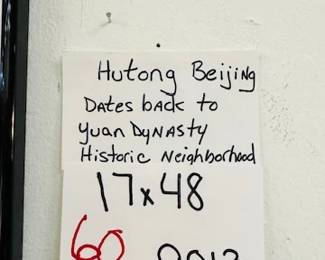 Hutong Beijing
Dates back to
Yuan Dynasty
Historic Neighborhood
17x48
60